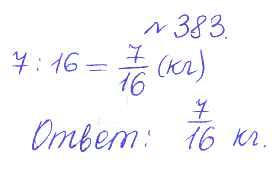 № 383.
7 : 16 = 7/16 (кг)
Ответ: 7/16 кг.